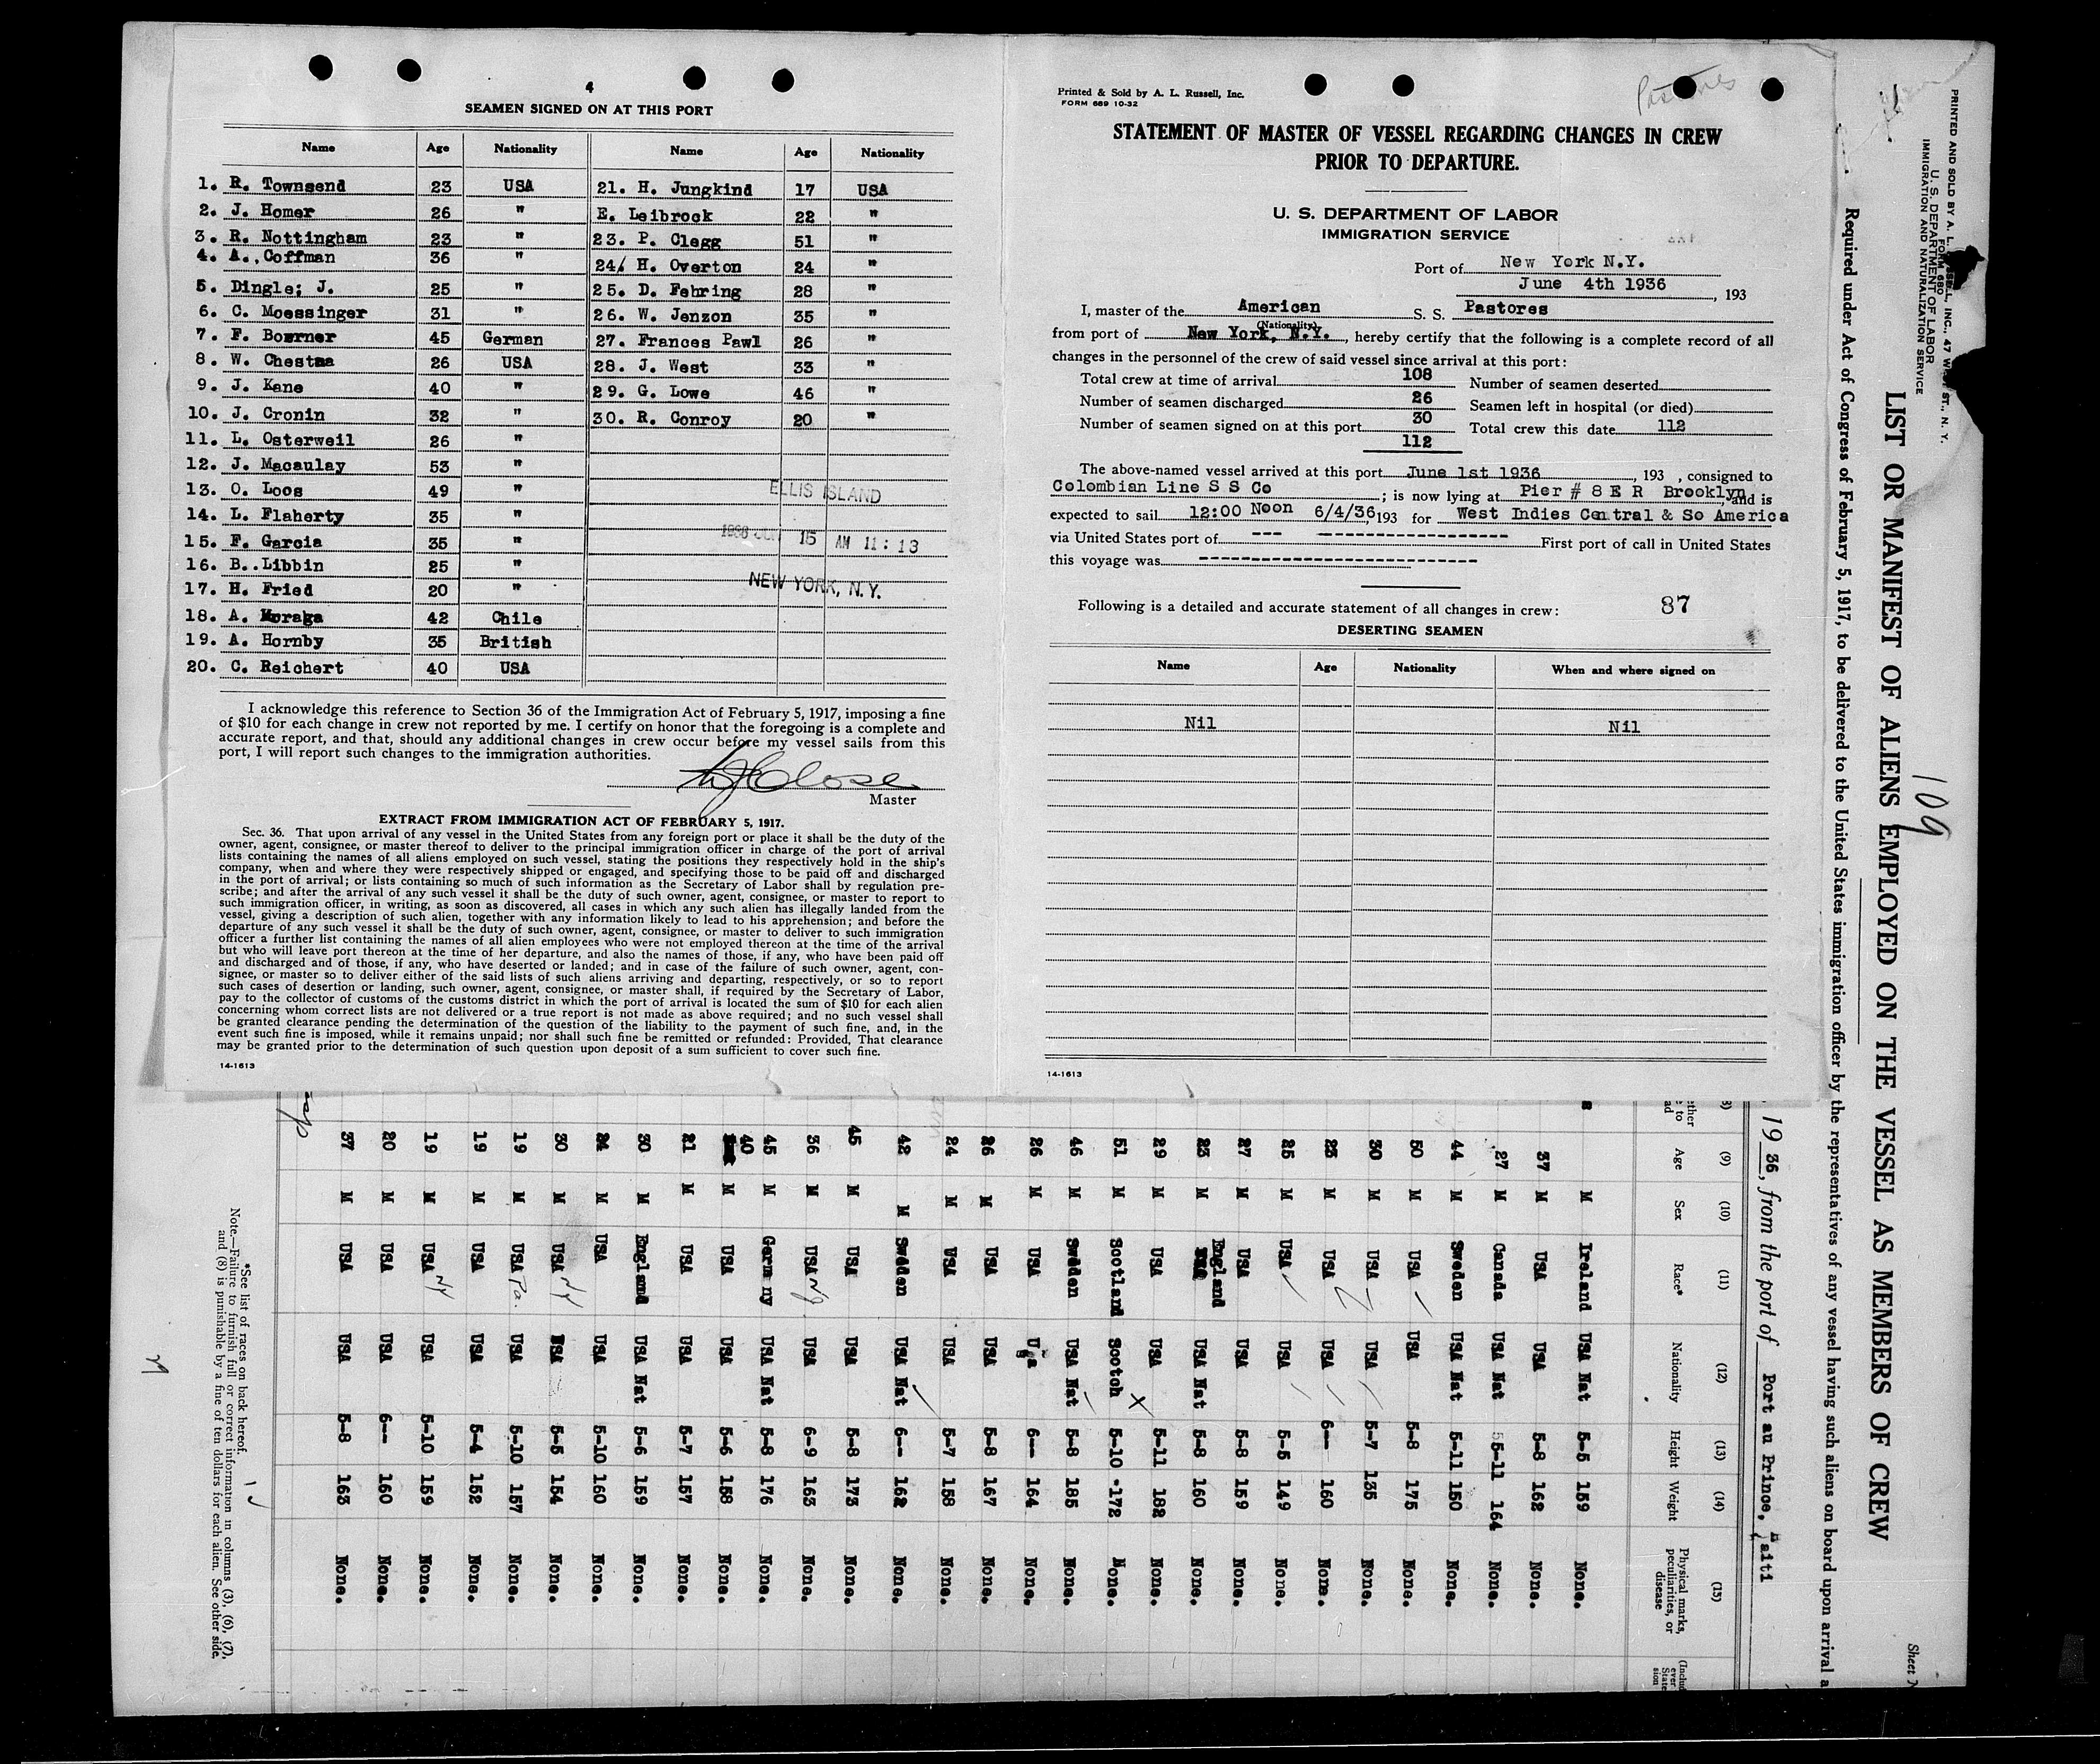 4
SEAMEN SIGNED ON AT THIS PORT
Name Age Nationality Name Age Nationality
1. R. Townsend 23 USA 21. H. Jungkind 17 USA
2. J. Homer 26 " E. Leibrock 22 "
3. R. Nottingham 23 " 23. P. Clegg 51 "
4. A. Coffman 36 " 24/ H. Overton 24 "
5. Dingle; J. 25 " 25. D. Fehring 28 "
6. C. Moessinger 31 " 26. W. Jenzon 35 "
7. F. Boerner 45 German 27. Frances Pawl 26 "
8. W. Chestna 26 USA 28. J. West 33 "
9. J. Kane 40 " 29. G. Lowe 46 "
10. J. Cronin 32 " 30. R. Conroy 20 "
11. L. Osterweil 26 "
12. J. Macaulay 53 "
13. O. Loos 49 "
14. L. Flaherty 35 "
15. F. Garcia 35 "
16. B..Libbin 25 "
17. H. Fried 20 "
18. A. Moraga 42 Chile
19. A. Hornby 35 British
20. C. Reichert 40 USA
ELLIS ISLAND
1936 JUN 15 AM 11:13
NEW YORK, N.Y.
I acknowledge this reference to Section 36 of the Immigration Act of February 5, 1917, imposing a fine
of $10 for each change in crew not reported by me. I certify on honor that the foregoing is a complete and
accurate report, and that, should any additional changes in crew occur before my vessel sails from this
port, I will report such changes to the immigration authorities.
Close
Master
EXTRACT FROM IMMIGRATION ACT OF FEBRUARY 5, 1917.
Sec. 36. That upon arrival of any vessel in the United States from any foreign port or place it shall be the duty of the
owner, agent, consignee, or master thereof to deliver to the principal immigration officer in charge of the port of arrival
lists containing the names of all aliens employed on such vessel, stating the positions they respectively hold in the ship's
company, when and where they were respectively shipped or engaged, and specifying those to be paid off and discharged
in the port of arrival; or lists containing so much of such information as the Secretary of Labor shall by regulation pre-
scribe; and after the arrival of any such vessel it shall be the duty of such owner, agent, consignee, or master to report to
such immigration officer, in writing, as soon as discovered, all cases in which any such alien has illegally landed from the
vessel, giving a description of such alien, together with any information likely to lead to his apprehension; and before the
departure of any such vessel it shall be the duty of such owner, agent, consignee, or master to deliver to such immigration
officer a further list containing the names of all alien employees who were not employed thereon at the time of the arrival
but who will leave port thereon at the time of her departure, and also the names of those, if any, who have been paid off
and discharged and of those, if any, who have deserted or landed; and in case of the failure of such owner, agent, con-
signee, or master so to deliver either of the said lists of such aliens arriving and departing, respectively, or so to report
such cases of desertion or landing, such owner, agent, consignee, or master shall, if required by the Secretary of Labor,
pay to the collector of customs of the customs district in which the port of arrival is located the sum of $10 for each alien
concerning whom correct lists are not delivered or a true report is not made as above required; and no such vessel shall
be granted clearance pending the determination of the question of the liability to the payment of such fine, and, in the
event such fine is imposed, while it remains unpaid; nor shall such fine be remitted or refunded: Provided, That clearance
may be granted prior to the determination of such question upon deposit of a sum sufficient to cover such fine.
14-1613
Pastores
Printed & Sold by A. L. Russell, Inc.
FORM 689 10-32
STATEMENT OF MASTER OF VESSEL REGARDING CHANGES IN CREW
PRIOR TO DEPARTURE.
U. S. DEPARTMENT OF LABOR
IMMIGRATION SERVICE
Port of New York N.Y.
June 4th 1936, 193
I, master of the American S. S. Pastores
(Nationality)
from port of New York, N.Y., hereby certify that the following is a complete record of all
changes in the personnel of the crew of said vessel since arrival at this port:
Total crew at time of arrival 108 Number of seamen deserted
Number of seamen discharged 26 Seamen left in hospital (or died)
Number of seamen signed on at this port 30 Total crew this date 112
112
The above-named vessel arrived at this port June 1st 1936, 193 , consigned to
Colombian Line S S Co ; is now lying at Pier # 8 E R Brooklyn and is
expected to sail 12:00 Noon 6/4/36, 193 for West Indies Central & So America
via United States port of --- ------------------- First port of call in United States
this voyage was ----------------------------
Following is a detailed and accurate statement of all changes in crew: 87
DESERTING SEAMEN
Name Age Nationality When and where signed on
Nil Nil
14-1613
PRINTED AND SOLD BY A. L. RUSSELL, INC., 47 W ST., N. Y.
FORM 680
U. S. DEPARTMENT OF LABOR
IMMIGRATION AND NATURALIZATION SERVICE
Sheet
109
LIST OR MANIFEST OF ALIENS EMPLOYED ON THE VESSEL AS MEMBERS OF CREW
Required under Act of Congress of February 5, 1917, to be delivered to the United States immigration officer by the representatives of any vessel having such aliens on board upon arrival
19 36, from the port of Port au Prince, Haiti
(9) (10) (11) (12) (13) (14) (15)
Age Sex Race* Nationality Height Weight Physical marks, peculiarities, or disease
M Ireland USA Nat 5-5 159 None.
37 M USA USA 5-8 162 None.
27 M Canada USA Nat 5-11 164 None.
44 M Sweden USA Nat 5-11 150 None.
50 M USA USA 5-8 175 None.
30 M USA USA 5-7 135 None.
23 M USA USA 6-- 160 None.
25 M USA USA 5-5 149 None.
27 M USA USA 5-8 159 None.
23 M England USA Nat 5-8 160 None.
29 M USA USA 5-11 182 None.
51 M Scotland Scotch X 5-10 -172 None.
46 M Sweden USA Nat 5-8 185 None.
26 M USA USA 6-- 164 None.
26 M USA USA 5-8 167 None.
24 M USA USA 5-7 158 None.
42 M Sweden USA Nat 6-- 162 None.
45 M USA USA 5-8 173 None.
36 M USA NJ USA 6-9 163 None.
45 M Germ ny USA Nat 5-8 176 None.
40 M USA USA 5-6 158 None.
21 M USA USA 5-7 157 None.
30 M England USA Nat 5-6 159 None.
24 M USA USA 5-10 160 None.
30 M USA NY USA 5-5 154 None.
19 M USA Pa. USA 5-10 157 None.
19 M USA USA 5-4 152 None.
19 M USA NY USA 5-10 159 None.
20 M USA USA 6-- 160 None.
37 M USA USA 5-8 163 None.
*See list of races on back hereof.
Note.—Failure to furnish full or correct information in columns (3), (6), (7),
and (8) is punishable by a fine of ten dollars for each alien. See other side.